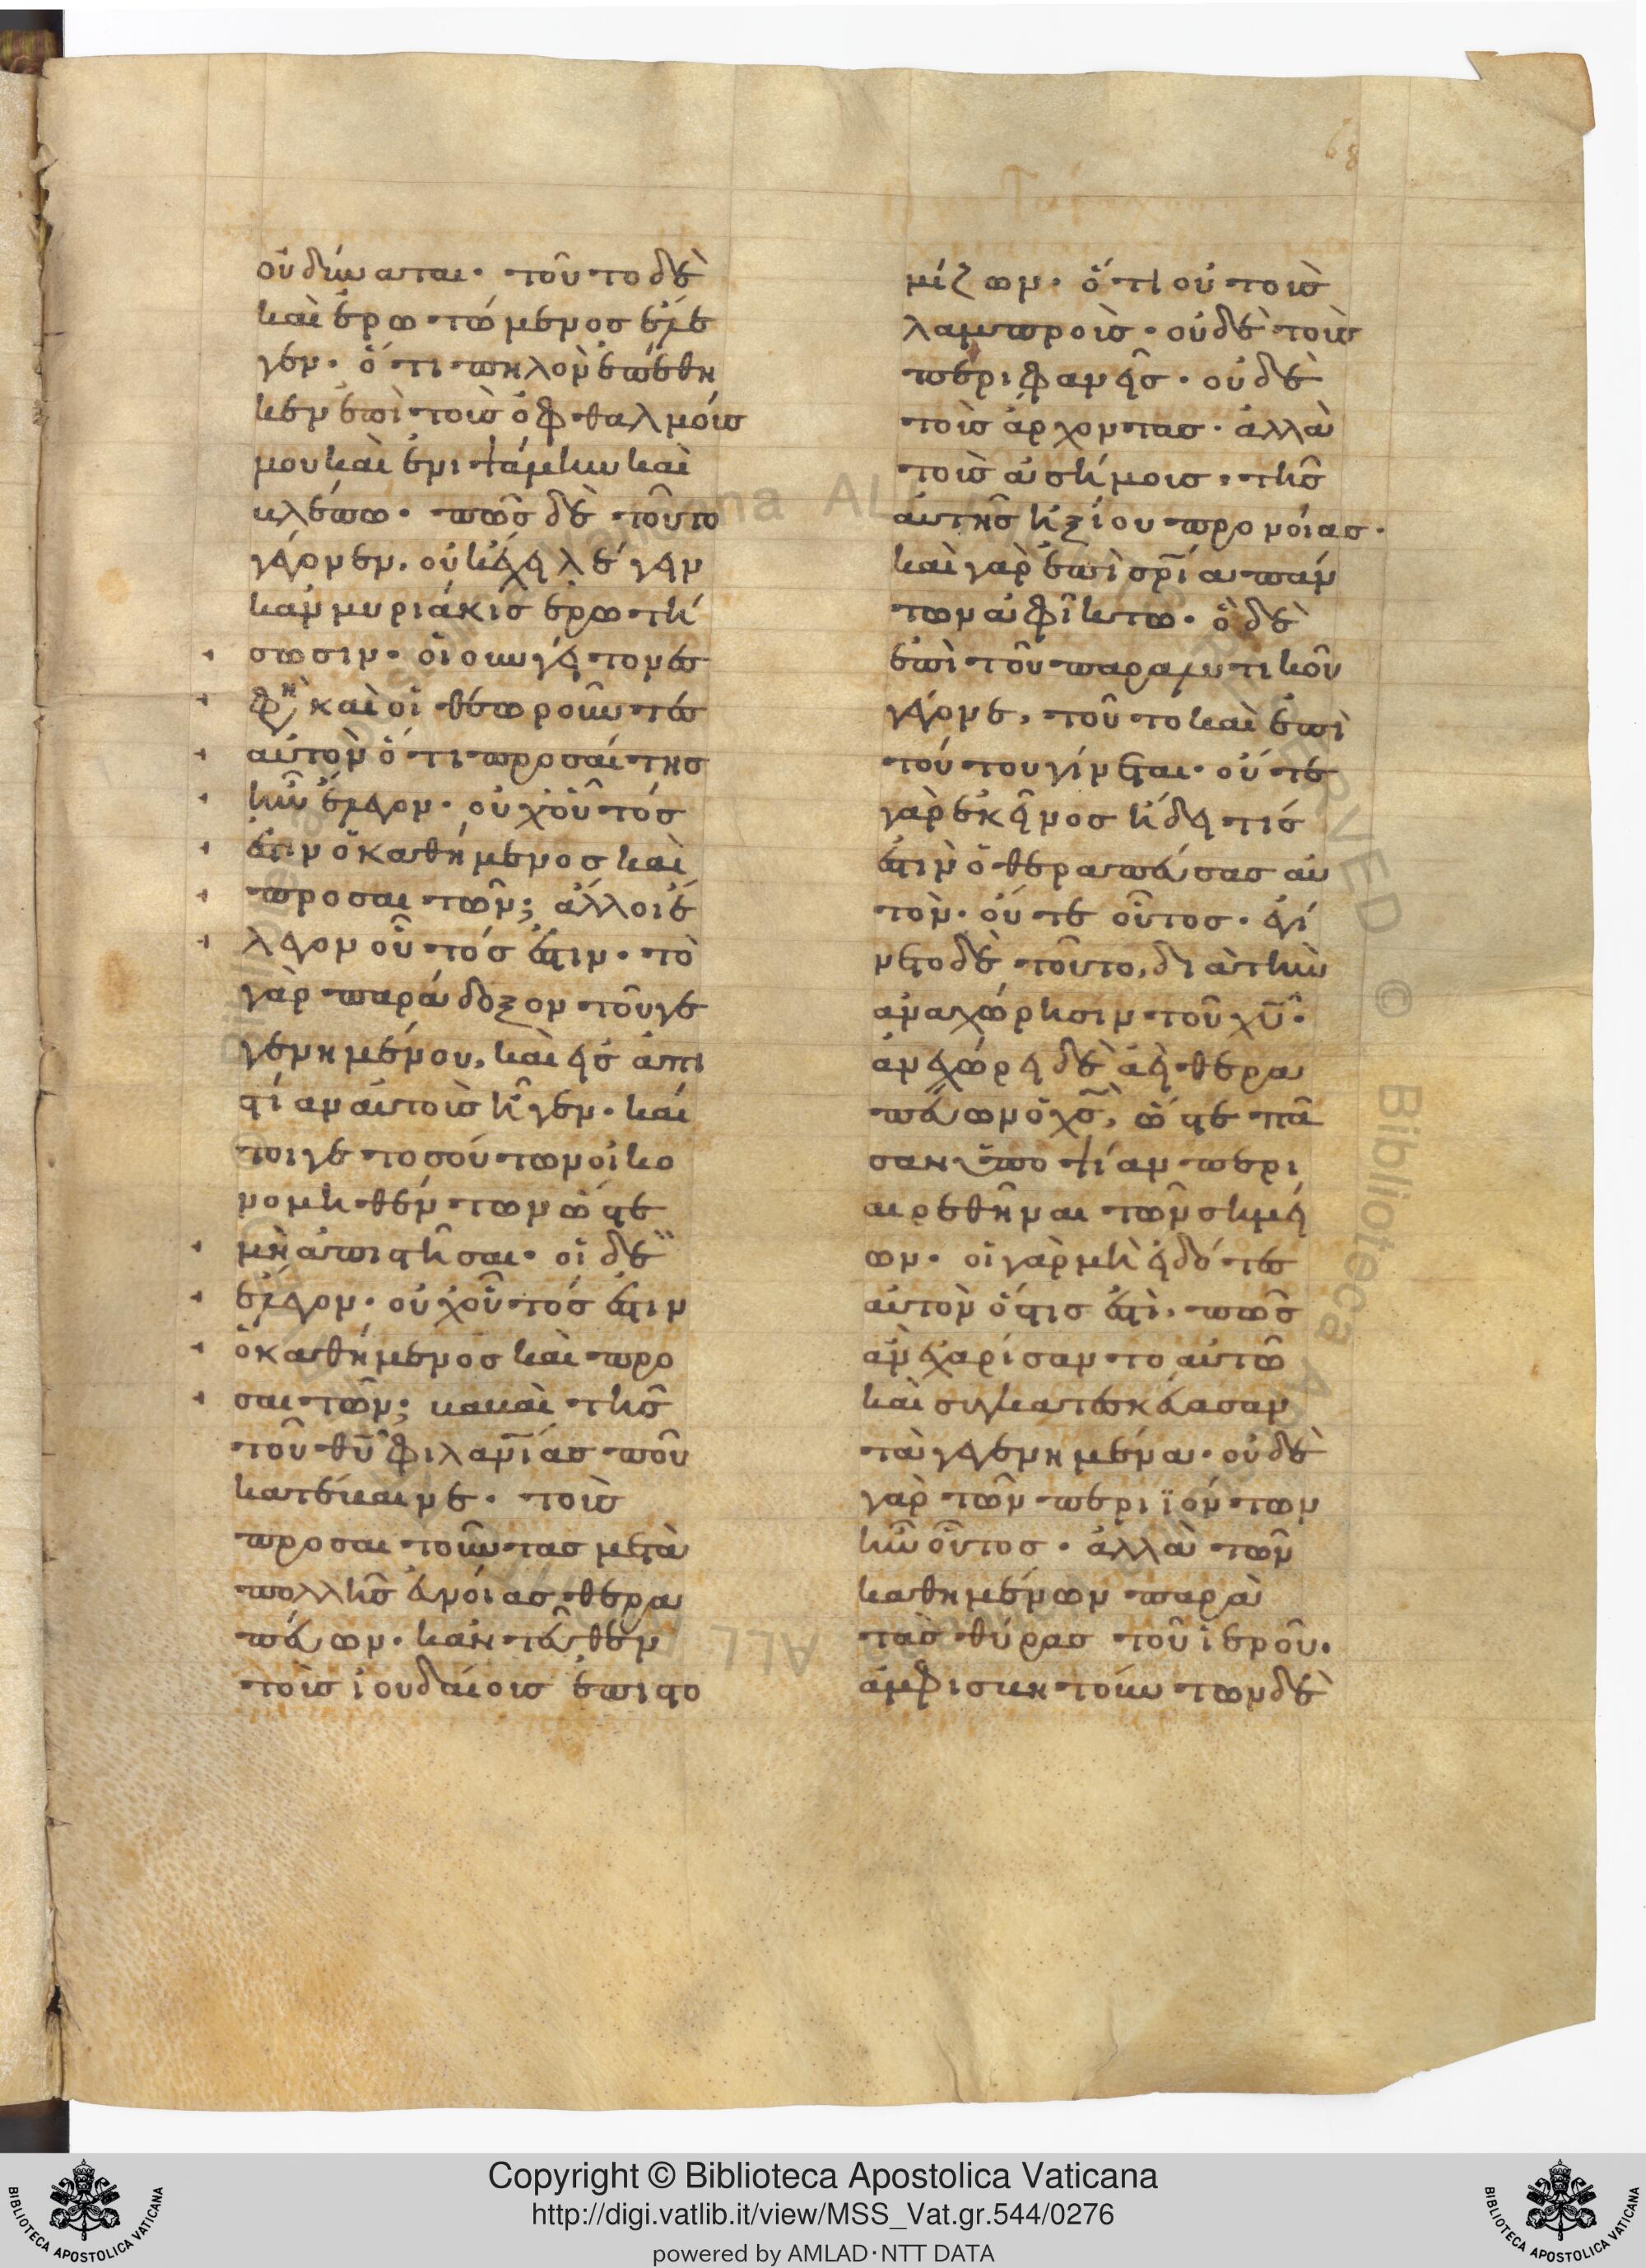 68
οὐ δύναται· τοῦτο δὲ
καὶ ἐρωτώμενος ἔλε
γεν· ὅτι πηλὸν ἐπέθη
κεν ἐπὶ τοὺς ὀφθαλμούς
μου καὶ ἐνιψάμην καὶ
βλέπω· πῶς δὲ τοῦτο
γέγονεν, οὐκ ἔχει λέγειν
κἂν μυριάκις ἐρωτή
σωσιν· οἱ οὖν γείτονές
φη καὶ οἱ θεωροῦντες
αὐτὸν ὅτι προσαίτης
ἦν ἔλεγον· οὐχ οὗτός
ἐστιν ὁ καθήμενος καὶ
προσαιτῶν; ἄλλοι ἔ
λεγον οὗτός ἐστιν· τὸ
γὰρ παράδοξον τοῦ γε
γενημένου, καὶ εἰς ἀπι
στίαν αὐτοὺς ἦγεν· καί
τοιγε τοσούτων οἰκο
νομηθέντων ὥστε
μὴ ἀπιστῆσαι· οἱ δὲ
ἔλεγον· οὐχ οὗτός ἐστιν
ὁ καθήμενος καὶ προ
σαιτῶν; βαβαὶ τῆς
τοῦ θ̅υ̅ φιλανίας ποῦ
κατέβαινε· τοὺς
προσαιτοῦντας μετὰ
πολλῆς εὐνοίας θερα
πεύων· κἀντεῦθεν
τοὺς ἰουδαίους ἐπιστο
μίζων· ὅτι οὐ τοὺς
λαμπροὺς· οὐδὲ τοὺς
περιφανεῖς· οὐδὲ
τοὺς ἄρχοντας· ἀλλὰ
τοὺς ἀσήμους, τῆς
αὐτῆς ἠξίου προνοίας·
καὶ γὰρ ἐπὶ σ̅ρ̅ίᾳ πάν
των ἀφῖκτο· ὃ δὲ
ἐπὶ τοῦ παραλυτικοῦ
γέγονε, τοῦτο καὶ ἐπὶ
τούτου γίνεται· οὔτε
γὰρ ἐκεῖνος ᾔδει τίς
ἐστὶν ὁ θεραπεύσας αὐ
τὸν· οὔτε οὗτος· ἐγί
νετο δὲ τοῦτο, διὰ τὴν
ἀναχώρησιν τοῦ χ̅υ̅·
ἀνεχώρει δὲ ἀεὶ θερα
πεύων ὁ χ̅ς̅, ὥστε πᾶ
σαν ὑποψίαν περι
αιρεθῆναι τῶν σημεί
ων· οἱ γὰρ μὴ εἰδότες
αὐτὸν ὅστις ἐστὶ, πῶς
ἂν ἐχαρίσαντο αὐτῶ
καὶ συγκατεσκεύασαν
τὰ γεγενημένα· οὐδὲ
γὰρ τῶν περιϊόντων
ἦν οὗτος· ἀλλὰ τῶν
καθημένων παρὰ
τὰς θύρας τοῦ ἱεροῦ.
ἀμφισβητούντων δὲ
Copyright © Biblioteca Apostolica Vaticana
http://digi.vatlib.it/view/MSS_Vat.gr.544/0276
powered by AMLAD·NTT DATA
BIBLIOTECA APOSTOLICA VATICANA
BIBLIOTECA APOSTOLICA VATICANA